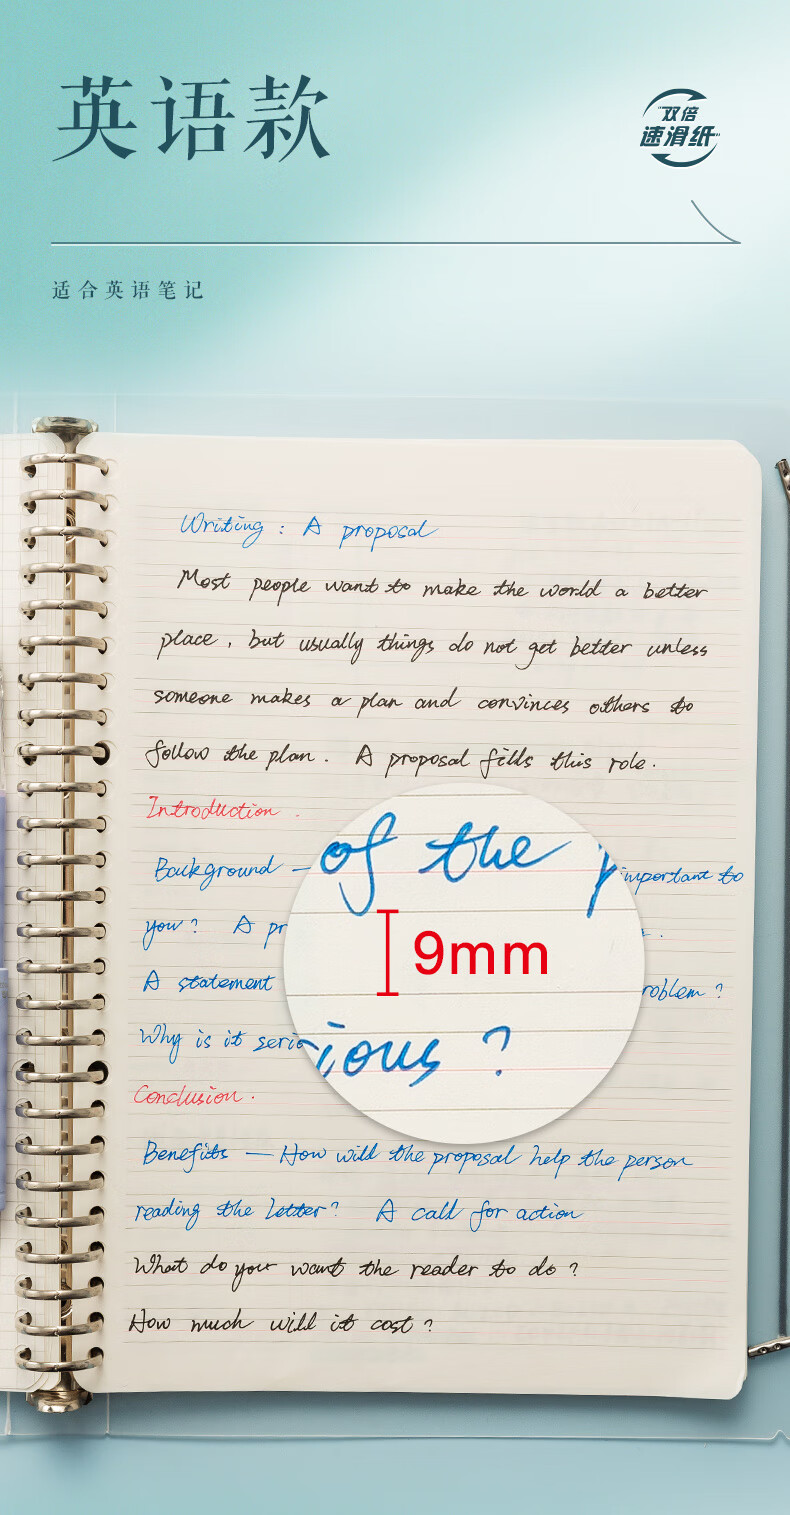 英语款
"双倍
速滑纸"
适合英语笔记
Writing : A proposal
Most people want to make the world a better
place , but usually things do not get better unless
someone makes a plan and convinces others to
follow the plan . A proposal fills this role .
Introduction .
Background — important to
you ? A pr
A statement roblem ?
Why is it serio
of the p
9mm
ious ?
Conclusion .
Benefits — How will the proposal help the person
reading the letter ? A call for action
What do you want the reader to do ?
How much will it cost ?